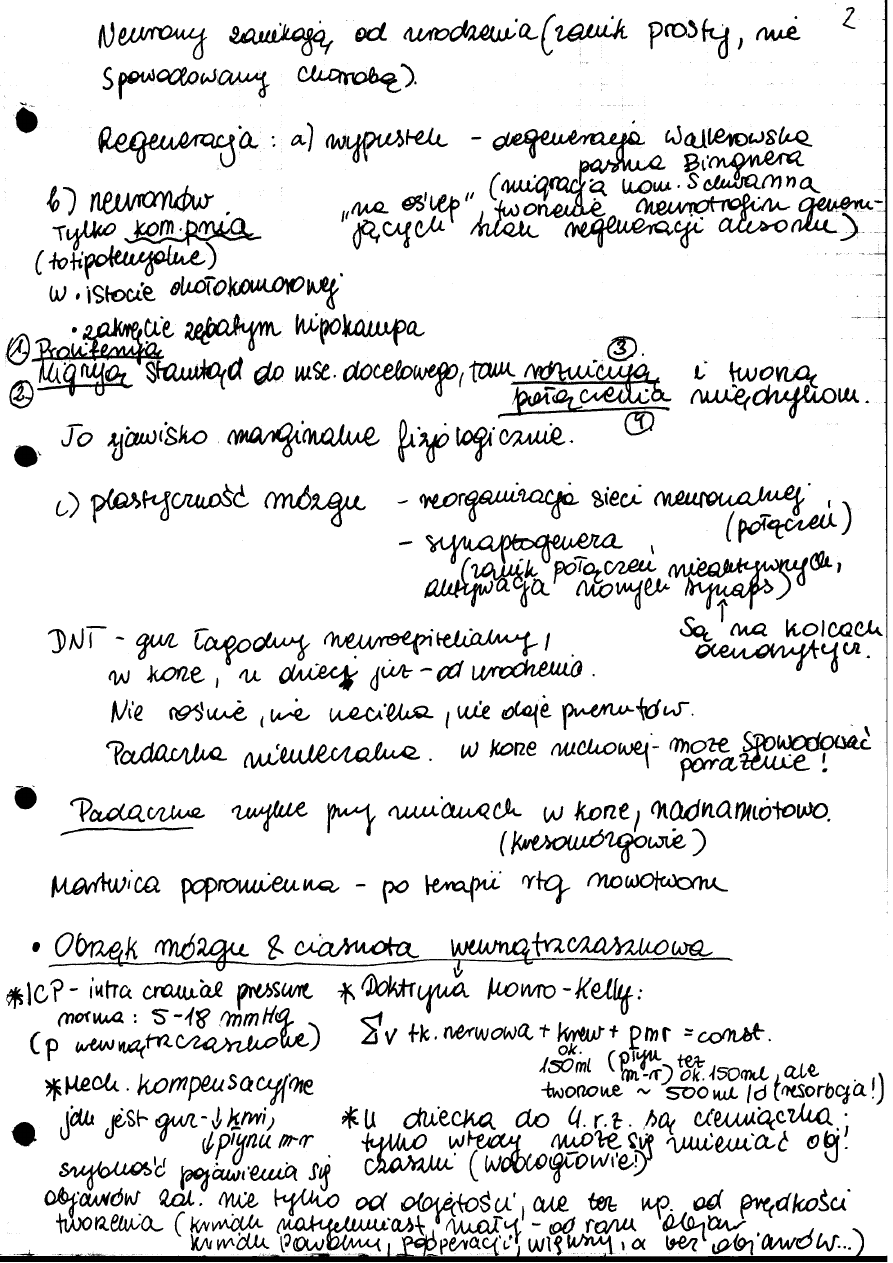 2
Neurony zanikają od urodzenia (zanik prosty, nie
spowodowany chorobą).
Regeneracja : a) wypustek - degeneracja Wallerowska
pasma Büngnera
(migracja kom. Schwanna
"na oślep" tworzenie neurotrofin generu-
jących szlak regeneracji aksonu)
b) neuronów
Tylko kom. pnia
(totipotencjalne)
w • istocie okołokomorowej
• zakręcie zębatym hipokampa
1. Proliferują
2. Migrują stamtąd do msc. docelowego, tam różnicują 3. i tworzą
połączenia 4. międzykom.
To zjawisko marginalne fizjologicznie.
c) plastyczność mózgu - reorganizacja sieci neuronalnej
(połączeń)
- synaptogeneza
(zanik połączeń nieaktywnych,
aktywacja nowych synaps)
↑
Są na kolcach
dendrytycz.
DNT - guz łagodny neuroepitelialny,
w korze, u dzieci już - od urodzenia.
Nie rośnie, nie nacieka, nie daje przerzutów.
Padaczka nieuleczalna. w korze ruchowej - może spowodować
porażenie!
Padaczka zwykle przy zmianach w korze, nadnamiotowo.
(kresomózgowie)
Martwica popromienna - po terapii rtg nowotworu
• Obrzęk mózgu & ciasnota wewnątrzczaszkowa
↓
* ICP - intra cranial pressure
norma: 5-18 mmHg
(p wewnątrzczaszkowe)
* Doktryna Monro-Kelly:
Σv tk. nerwowa + krew + pmr = const.
ok. 150ml (płyn m-r) też ok. 150ml, ale
tworzone ~ 500ml/d (resorbcja!)
* Mech. kompensacyjne
jak jest guz - ↓ krwi,
↓ płynu m-r
* U dziecka do 4. r.ż. są ciemiączka;
tylko wtedy może się zmieniać obj.
czaszki (wodogłowie!)
szybkość pojawienia się
objawów zal. nie tylko od objętości, ale też np. od prędkości
tworzenia (krwiak natychmiast, mały - od razu objaw
krwiak powolny, po operacji, większy, a bez objawów...)